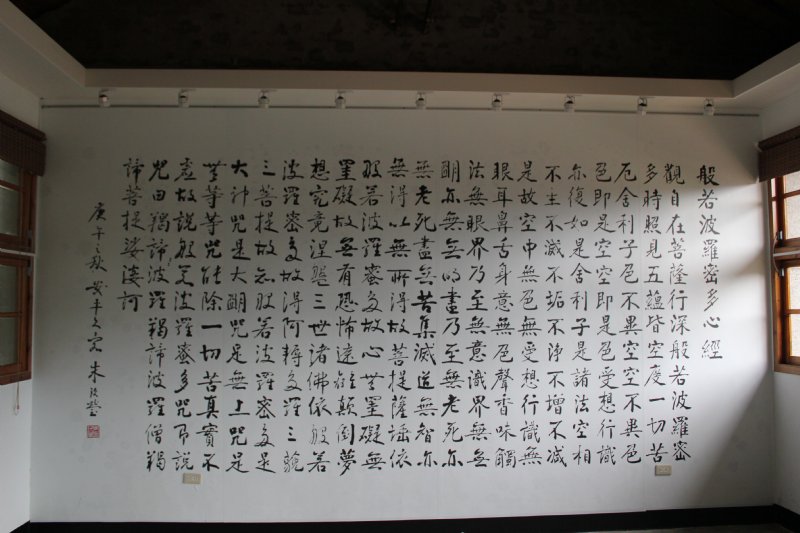 般若波羅密多心經
觀自在菩薩行深般若波羅密
多時照見五蘊皆空度一切苦
厄舍利子色不異空空不異色
色即是空空即是色受想行識
亦復如是舍利子是諸法空相
不生不滅不垢不淨不增不減
是故空中無色無受想行識無
眼耳鼻舌身意無色聲香味觸
法無眼界乃至無意識界無無
明亦無無明盡乃至無老死亦
無老死盡無苦集滅道無智亦
無得以無所得故菩提薩埵依
般若波羅密多故心無罣礙無
罣礙故無有恐怖遠離顛倒夢
想究竟涅槃三世諸佛依般若
波羅密多故得阿耨多羅三藐
三菩提故知般若波羅密多是
大神咒是大明咒是無上咒是
無等等咒能除一切苦真實不
虛故說般若波羅密多咒即說
咒曰羯諦波羅羯諦波羅僧羯
諦菩提娑婆訶
庚午之秋 朱玖瑩